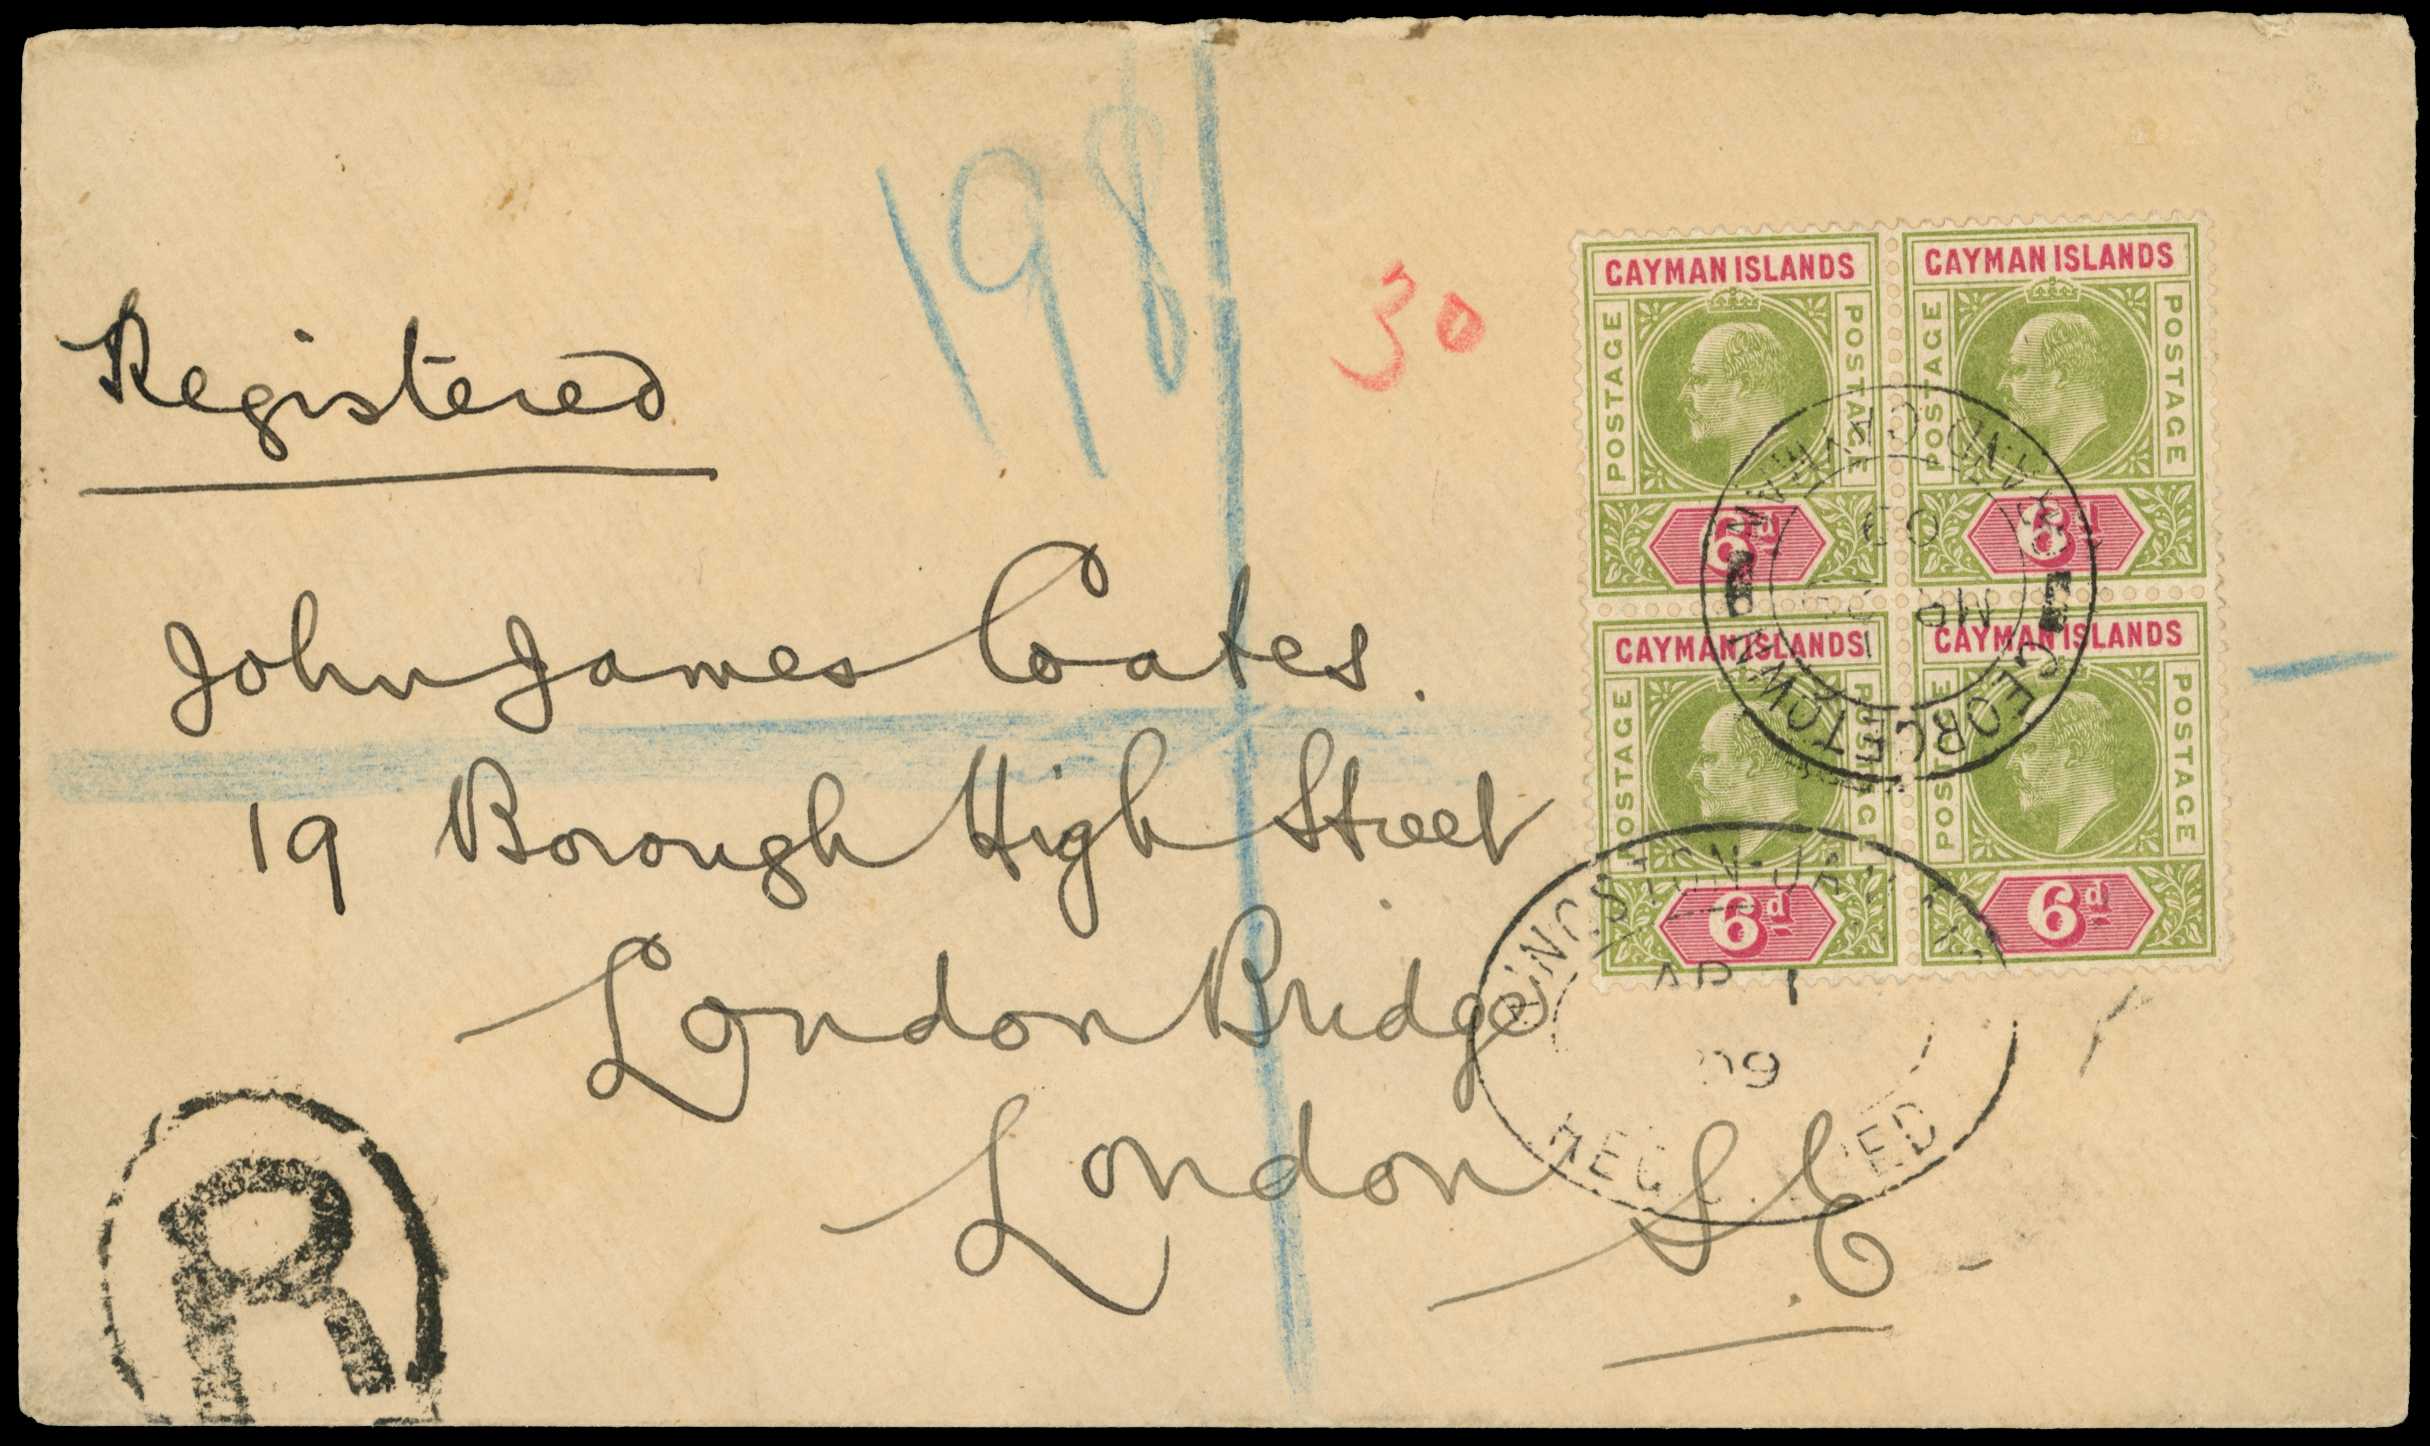 198
30
Registered
John James Coates.
19 Borough High Street
London Bridge
London S.E.
R
CAYMAN ISLANDS
POSTAGE POSTAGE
6d
CAYMAN ISLANDS
POSTAGE POSTAGE
6d
CAYMAN ISLANDS
POSTAGE POSTAGE
6d
CAYMAN ISLANDS
POSTAGE POSTAGE
6d
GRAND CAYMAN
GEORGETOWN
09
AP 1
09